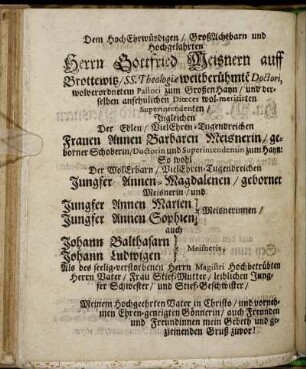 Dem HochEhrwürdigen / GroßAchtbarn und
Hochgelahrten
Herrn Gottfried Meisnern auff
Brottewitz / SS. Theologiæ weitberühmtē Doctori,
wolverordnetem Pastori zum GroßenHayn / und der-
selben ansehnlichen Diœces wol-meritirten
Superintendenten /
Ingleichen
Der Edlen / VielEhren-Tugendreichen
Frauen Annen Barbaren Meisnerin / ge-
borner Schoberin / Doctorin und Superintendentin zum Hayn:
So wohl
Der WolErbarn / VielEhren-Tugendreichen
Jungfer Annen-Magdalenen / geborner
Meisnerin / und
Jungfer Annen Marien
Jungfer Annen Sophien } Meisnerinnen /
auch
Johann Balthasarn
Johann Ludwigen } Meisnern /
Als des seelig-verstorbenen Herrn Magistri Hochbetrübten
Herrn Vater / Frau Stief-Mutter / leiblichen Jung-
fer Schwester / und Stief-Geschwister /
Meinem Hochgeehrten Vater in Christo / und vorneh-
men Ehren-geneigten Gönnerin / auch Freunden
und Freundinnen mein Gebeth und ge-
ziemenden Gruß zuvor!